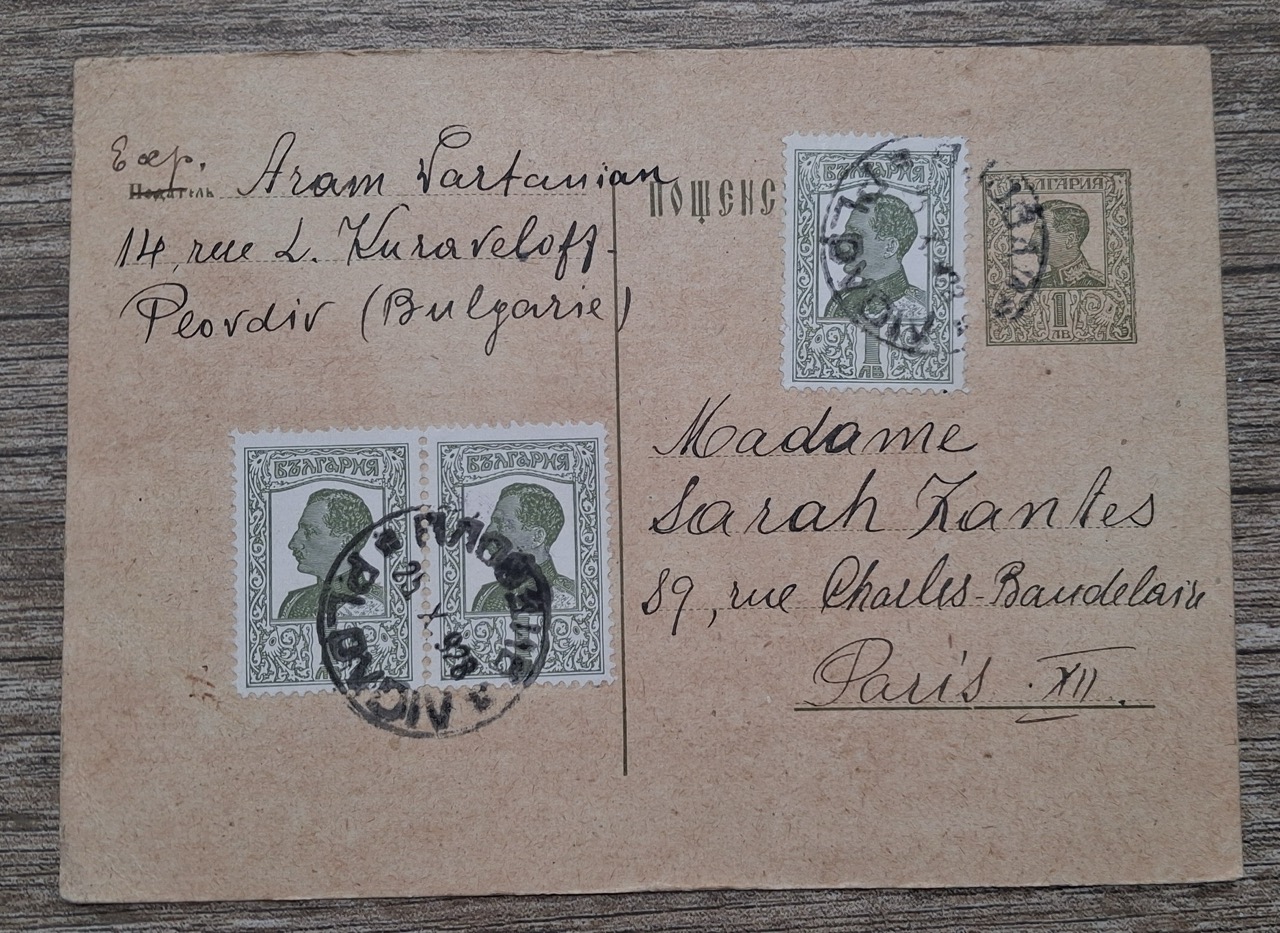 Exp. Aram Vartanian
Податель
14, rue L. Kuraveloff.
Plovdiv (Bulgarie)
ПОЩЕНС
БЪЛГАРИЯ
1
ЛВ
БЪЛГАРИЯ
1
ЛВ
Madame
Sarah Zantes
89, rue Charles-Baudelaire
Paris XII.
БЪЛГАРИЯ
БЪЛГАРИЯ
ПЛОВДИВ
PLOVDIV